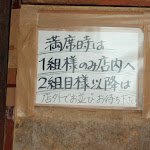 満席時は
1組様のみ店内へ
2組目様以降は
店外でお並びお待ち下さい